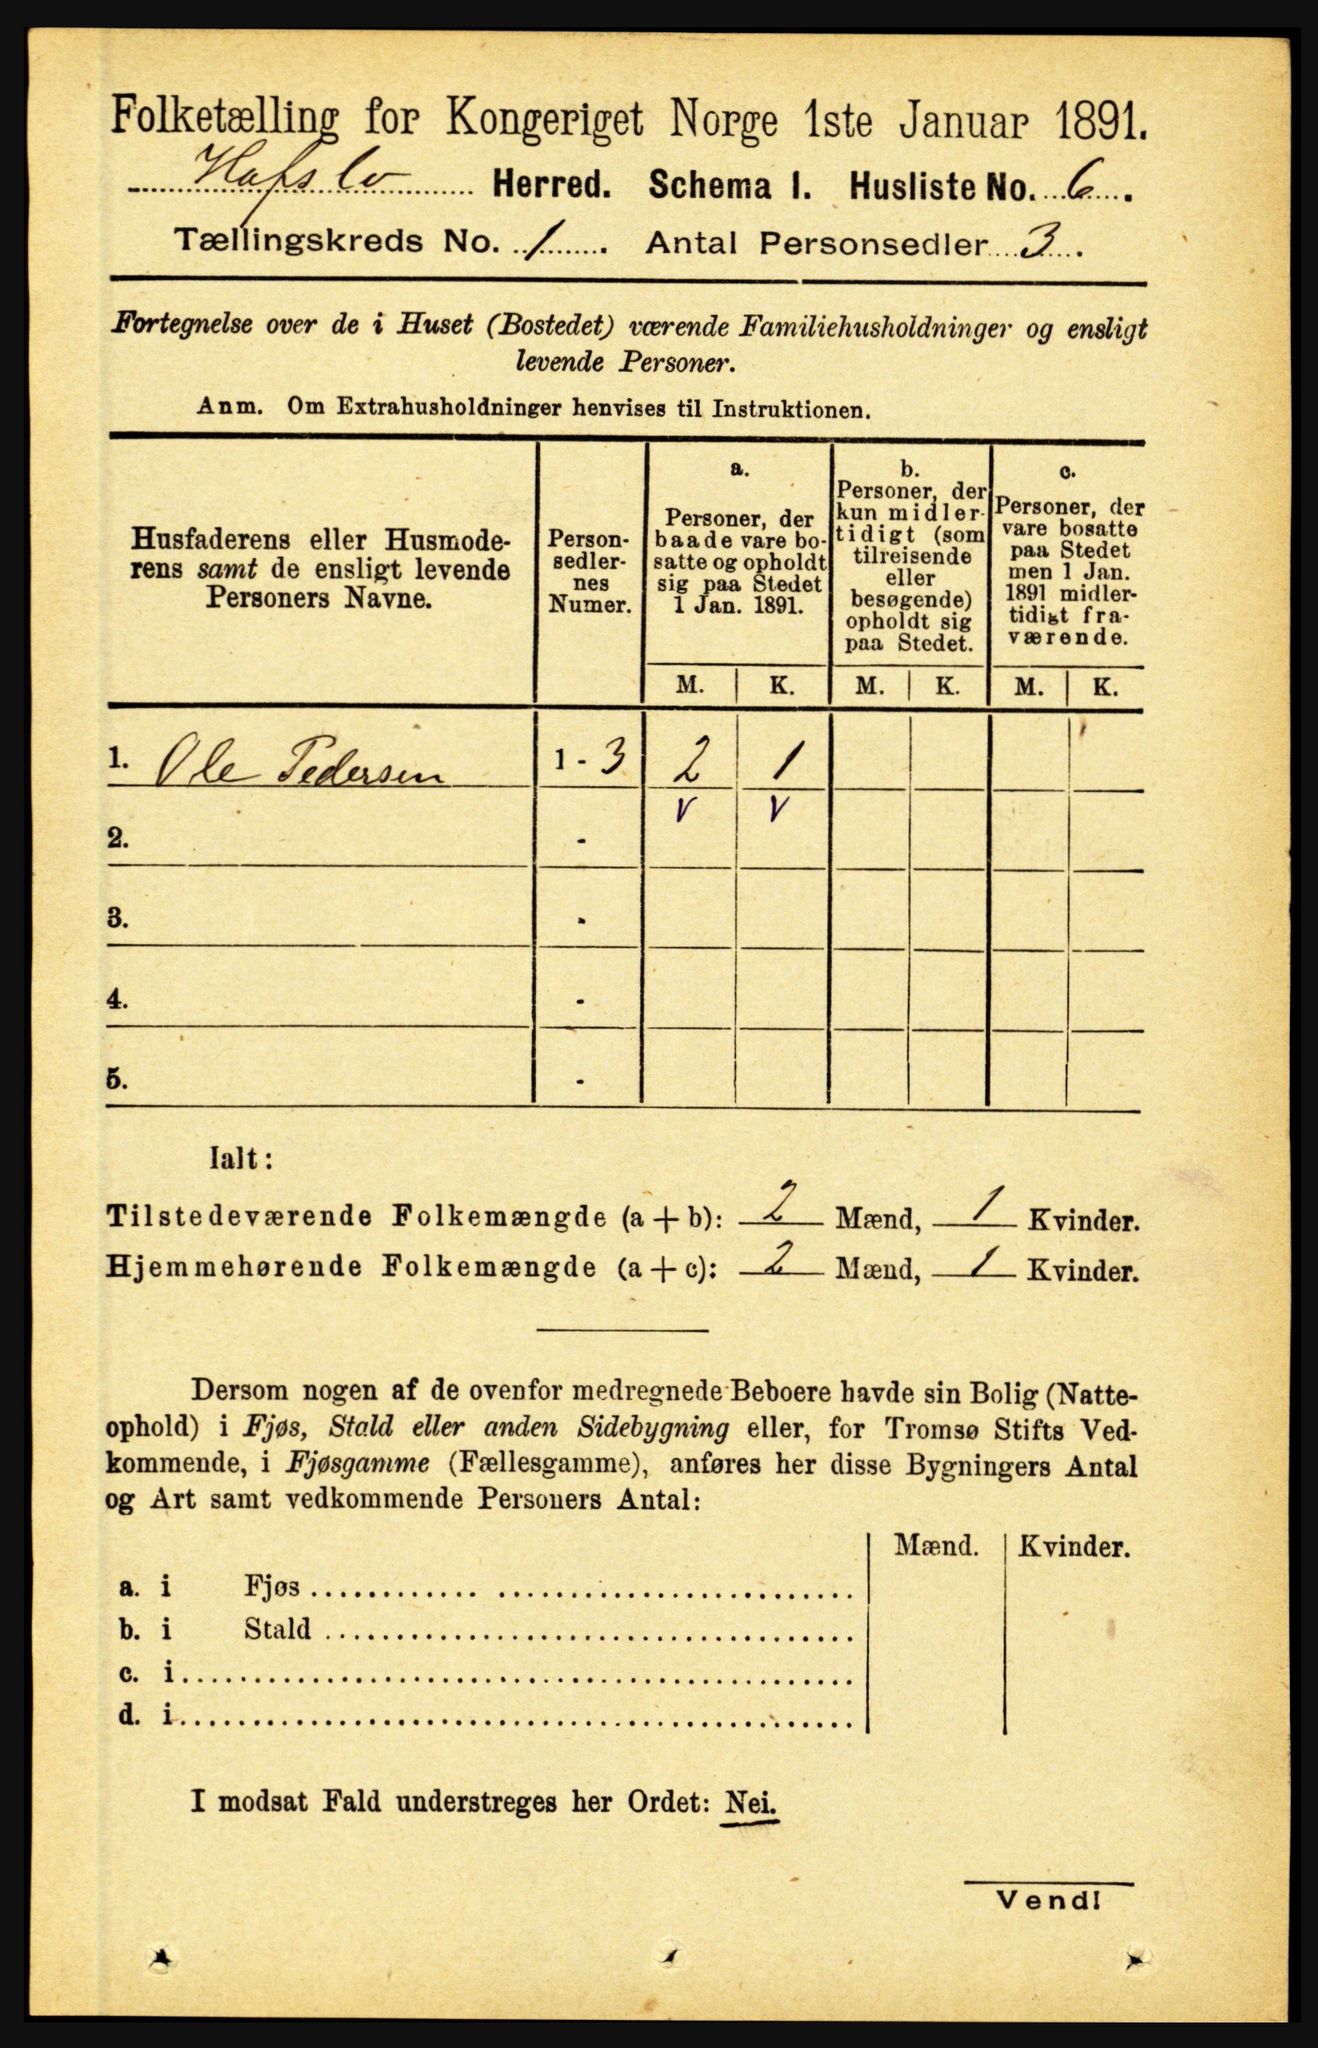 Folketælling for Kongeriget Norge 1ste Januar 1891.
Hafslo Herred. Schema 1. Husliste No. 6.
Tællingskreds No. 1. Antal Personsedler 3.
Fortegnelse over de i Huset (Bostedet) værende Familiehusholdninger og ensligt
levende Personer.
Anm. Om Extrahusholdninger henvises til Instruktionen.
Husfaderens eller Husmode-
rens samt de ensligt levende
Personers Navne.
Person-
sedler-
nes
Numer.
a.
Personer, der
baade vare bo-
satte og opholdt
sig paa Stedet
1 Jan. 1891.
b.
Personer, der
kun midler-
tidigt (som
tilreisende
eller
besøgende)
opholdt sig
paa Stedet.
c.
Personer, der
vare bosatte
paa Stedet
men 1 Jan.
1891 midler-
tidigt fra-
værende.
M. K. M. K. M. K.
1. Ole Pedersen 1 - 3 2 1
v v
2. -
3. -
4. -
5. -
Ialt:
Tilstedeværende Folkemængde (a + b): 2 Mænd, 1 Kvinder.
Hjemmehørende Folkemængde (a + c): 2 Mænd, 1 Kvinder.
Dersom nogen af de ovenfor medregnede Beboere havde sin Bolig (Natte-
ophold) i Fjøs, Stald eller anden Sidebygning eller, for Tromsø Stifts Ved-
kommende, i Fjøsgamme (Fællesgamme), anføres her disse Bygningers Antal
og Art samt vedkommende Personers Antal:
Mænd. Kvinder.
a. i Fjøs
b. i Stald
c. i
d. i
I modsat Fald understreges her Ordet: Nei.
Vend!